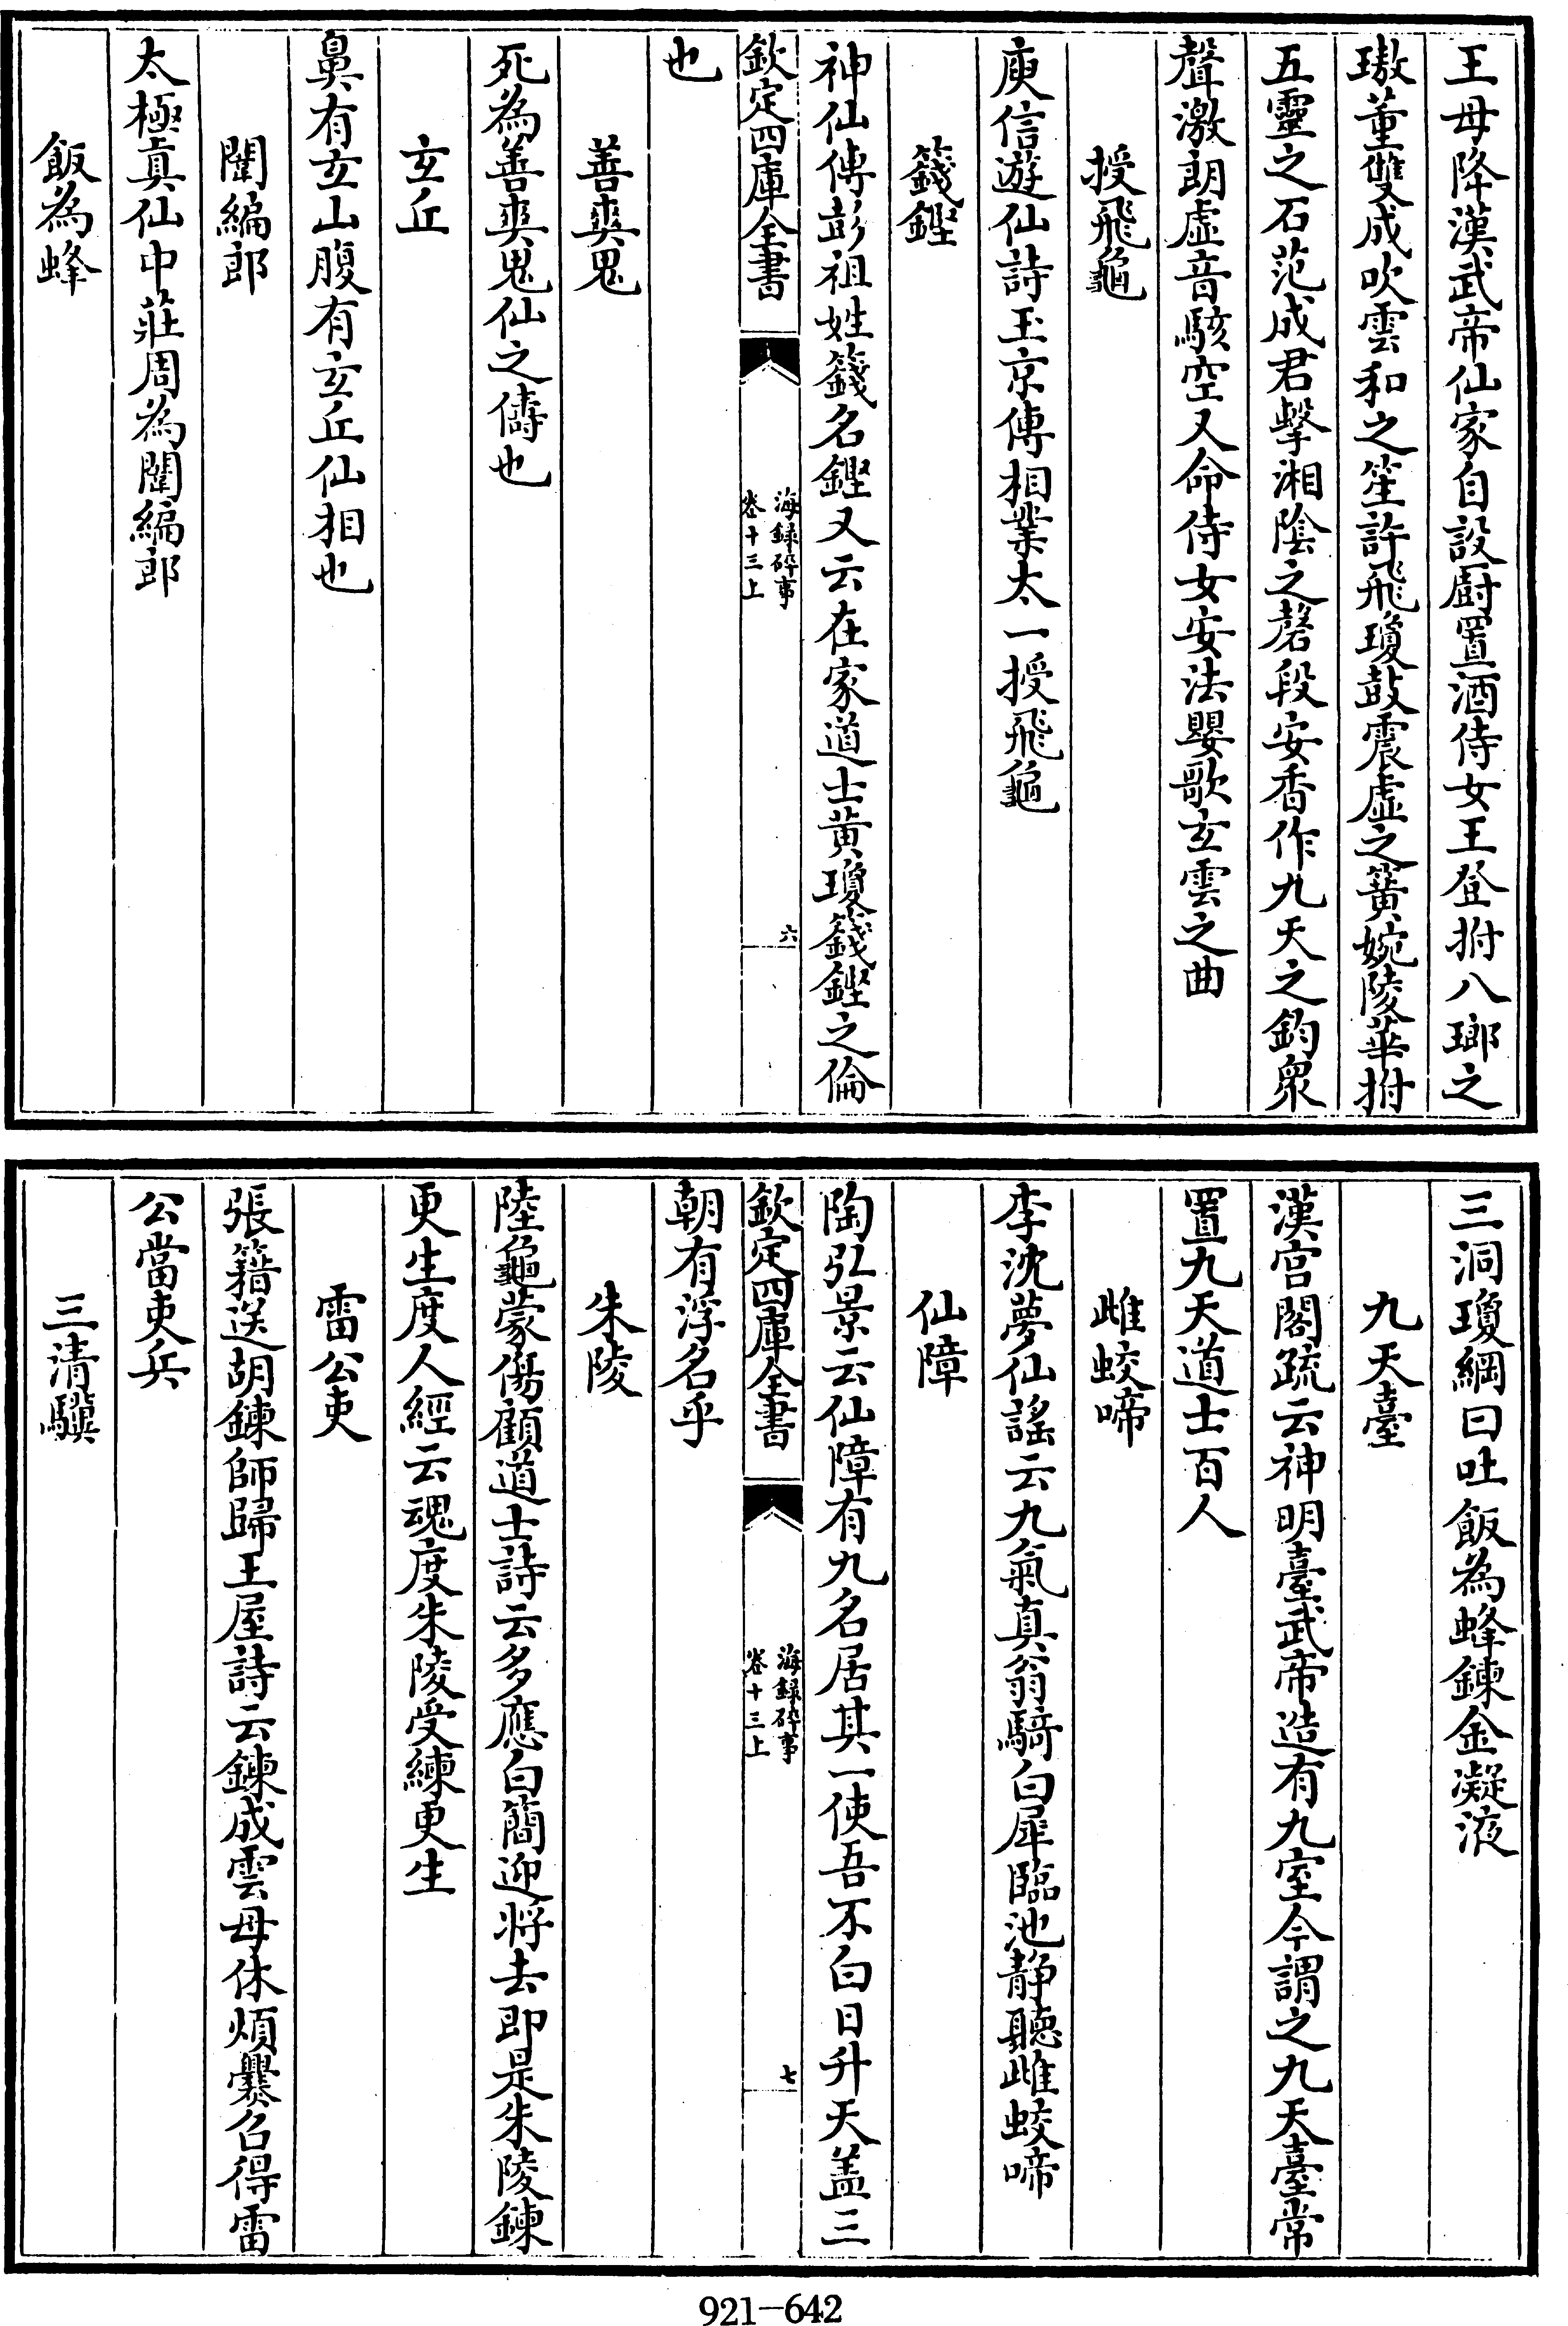 王母降漢武帝仙家自設廚置酒侍女王登拊八瑯之
璈董雙成吹雲和之笙許飛瓊鼓震虛之簧婉陵華拊
五靈之石范成君擊湘陰之磬段安香作九天之鈞衆
聲激朗虛音駭空又命侍女安法嬰歌玄雲之曲
授飛龜
庾信遊仙詩玉京傳相業太一授飛龜
籛鏗
神仙傳彭祖姓籛名鏗又云在家道士黃瓊籛鏗之倫
欽定四庫全書
海錄碎事
卷十三上
六
也
善爽鬼
死為善爽鬼仙之儔也
玄丘
鼻有玄山腹有玄丘仙相也
闈編郎
太極真仙中莊周為闈編郎
飯為蜂
三洞瓊綱曰吐飯為蜂鍊金凝液
九天臺
漢宫閣疏云神明臺武帝造有九室今謂之九天臺常
置九天道士百人
雌蛟啼
李沈夢仙謠云九氣真翁騎白犀臨池靜聽雌蛟啼
仙障
陶弘景云仙障有九名居其一使吾不白日升天盖三
欽定四庫全書
海錄碎事
卷十三上
七
朝有浮名乎
朱陵
陸龜蒙傷顧道士詩云多應白簡迎將去即是朱陵鍊
更生度人經云魂度朱陵受練更生
雷公吏
張籍送胡鍊師歸王屋詩云鍊成雲母休煩爨召得雷
公當吏兵
三清驥
921-642